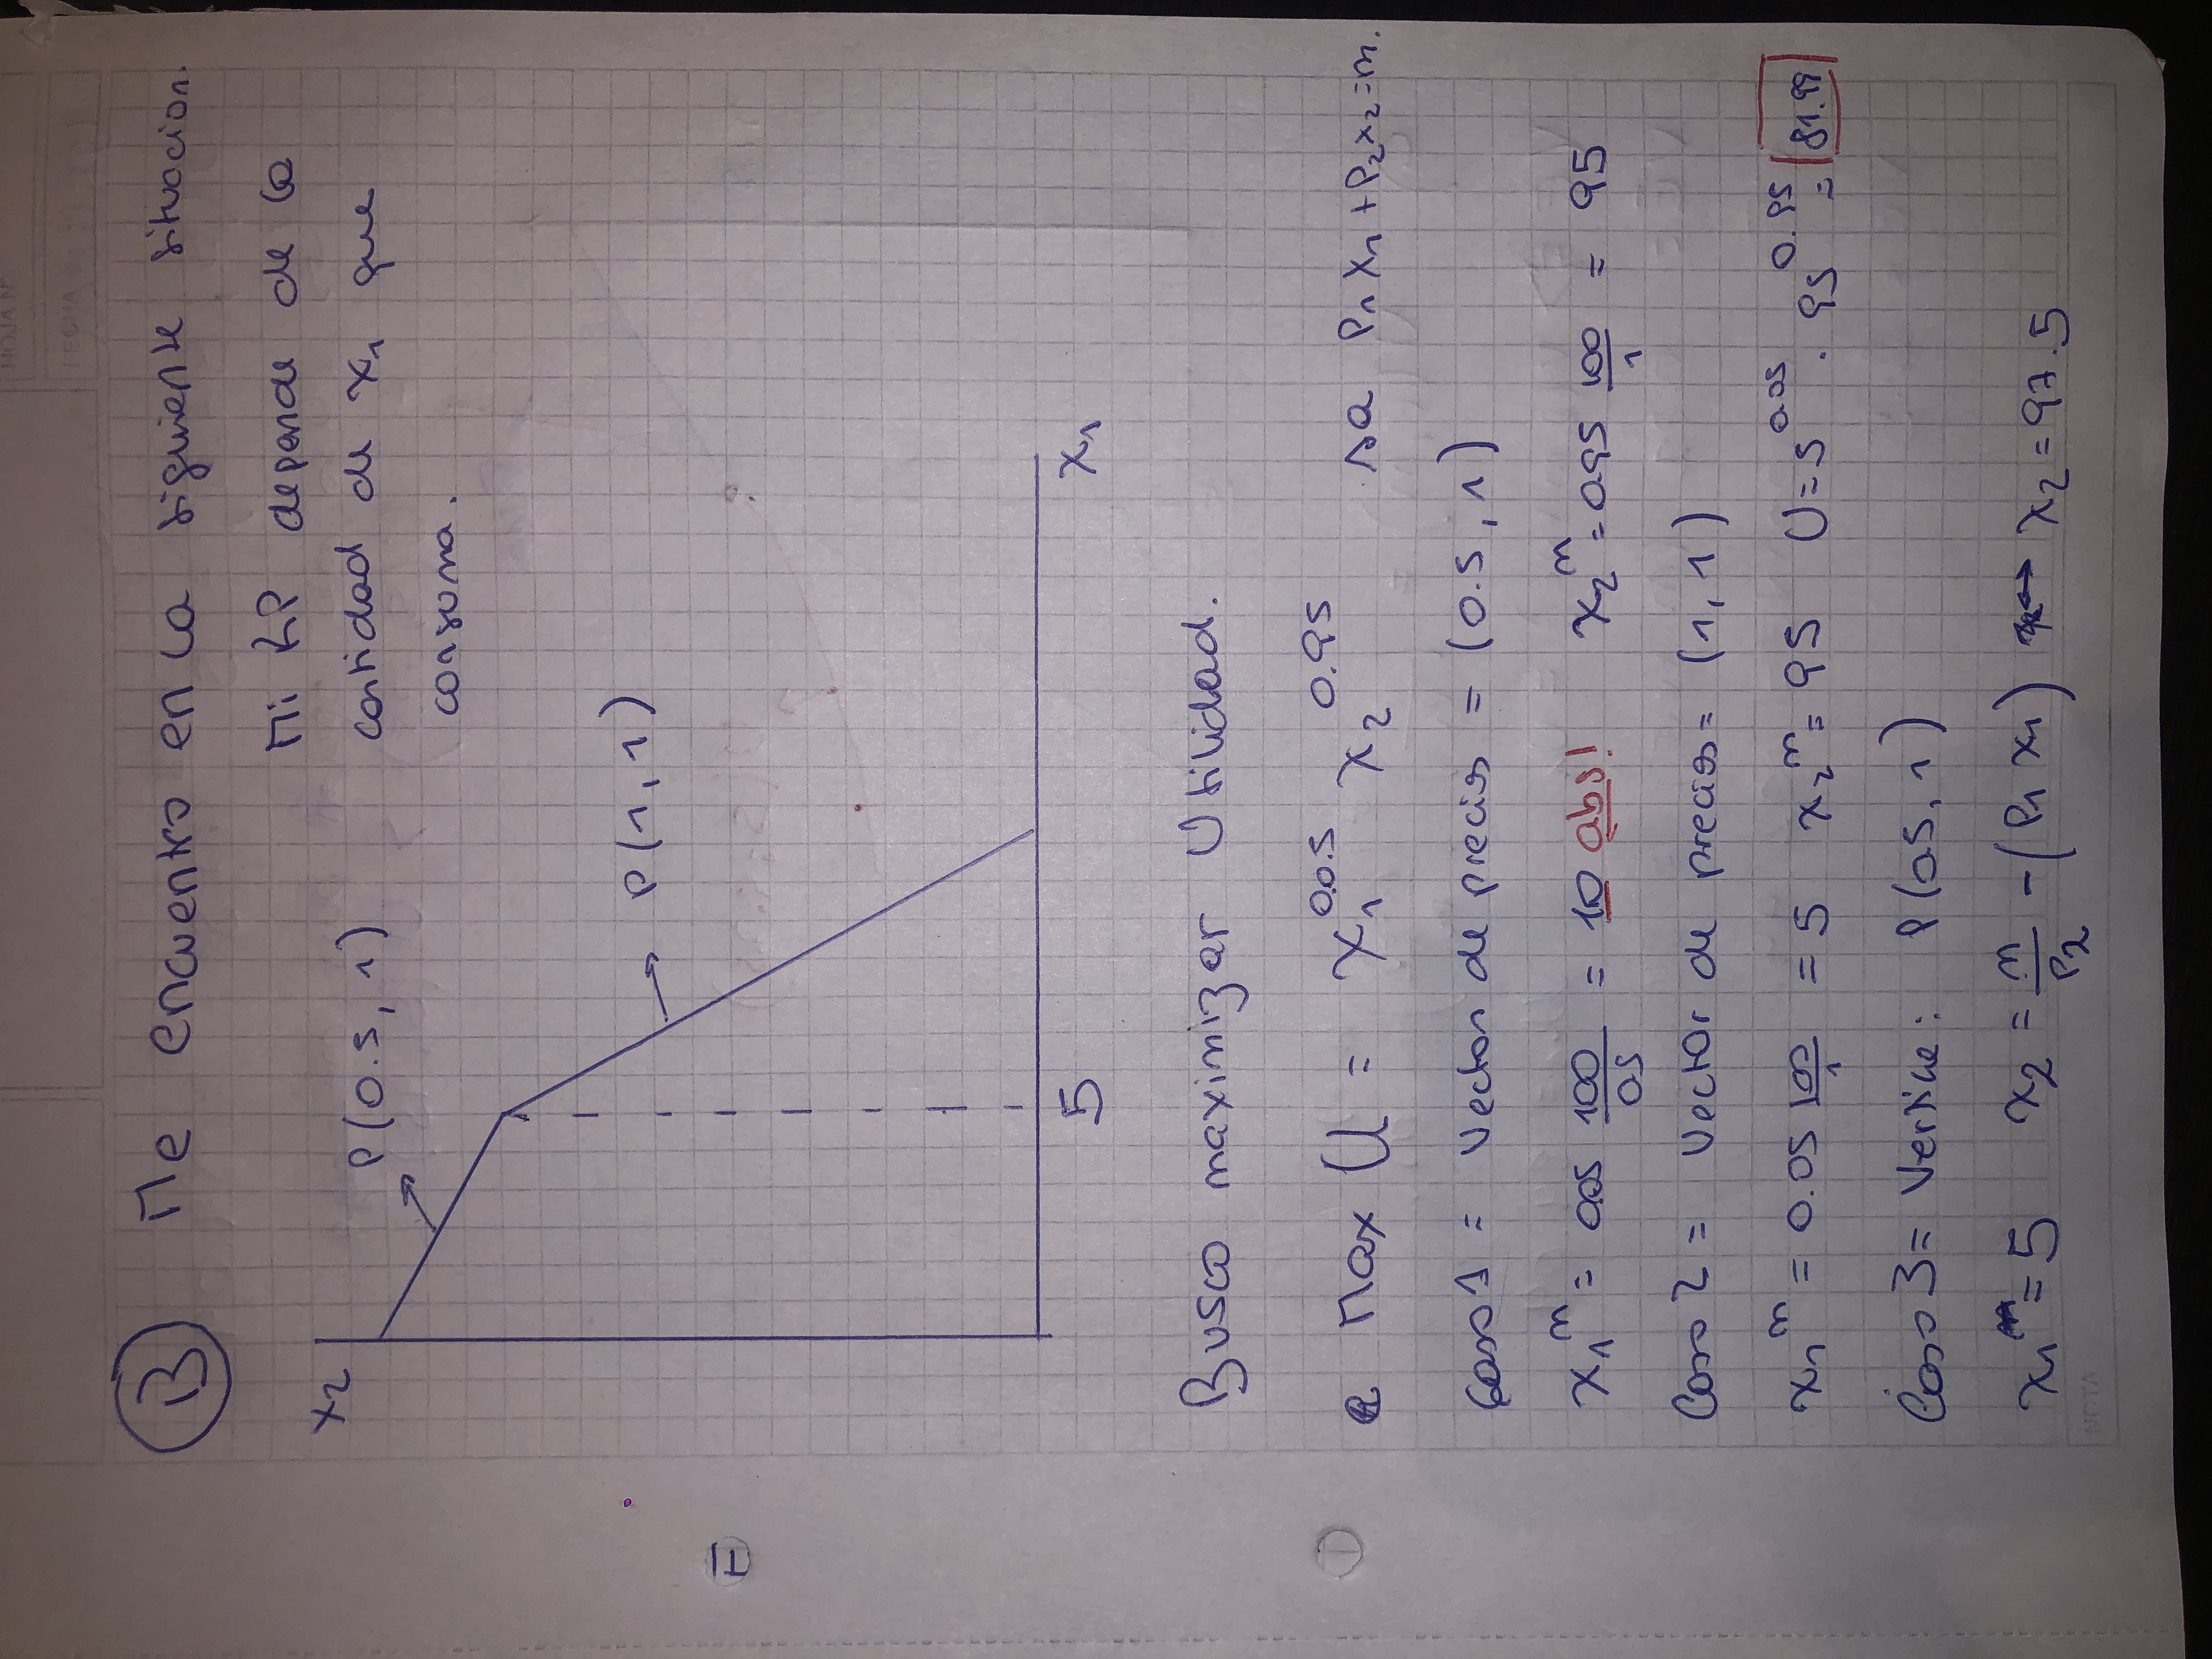 HOJA Nº
FECHA
B Me encuentro en la siguiente situacion.
Mi RP depende de la
cantidad de x1 que
consuma.
x2
P(0.5, 1)
P(1, 1)
5
x1
Busco maximizar Utilidad.
Max U = x1^0.05 x2^0.95 sa P1 x1 + P2 x2 = m.
Caso 1 = Vector de precios = (0.5, 1)
x1^m = 0.05 100/0.5 = 10 abs! x2^m = 0.95 100/1 = 95
Caso 2 = Vector de precios = (1, 1)
x1^m = 0.05 100/1 = 5 x2^m = 95 U = 5^0.05 . 95^0.95 = 81.99
Caso 3 = Vertice: P(0.5, 1)
x1 = 5 x2 = m/P2 - (P1 x1) ↔ x2 = 97.5
NOTA